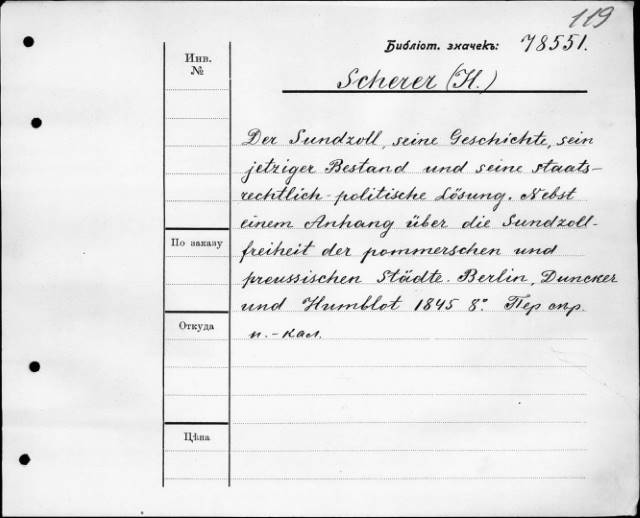 119
Библіот. значекъ: 78551.
Инв.
№
Scherer (H.)
Der Sundzoll, seine Geschichte, sein
jetziger Bestand und seine staats-
rechtlich-politische Lösung. Nebst
einem Anhang über die Sundzoll-
freiheit der pommerschen und
preussischen Städte. Berlin, Duncker
und Humblot 1845 8°. Пер спр.
н.-кал.
По заказу
Откуда
Цѣна